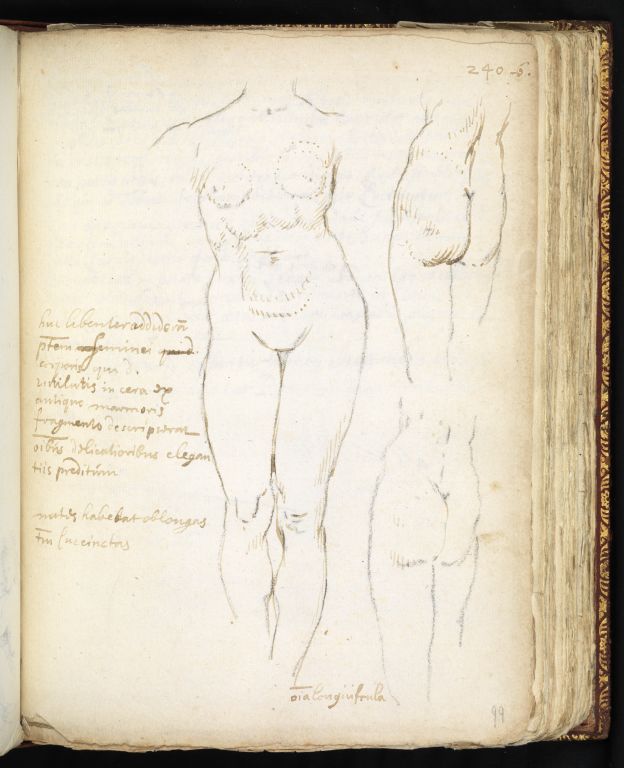 240-6.
huc libenter addidi
ptem feminei quod.
corporis qui d.
vitilutis in cera ex
antiquo marmoris
fragmento descripserat
oibus delicatioribus elegan
tiis preditum
nates habebat oblongas
tm succinctas
oia longiuscula
99